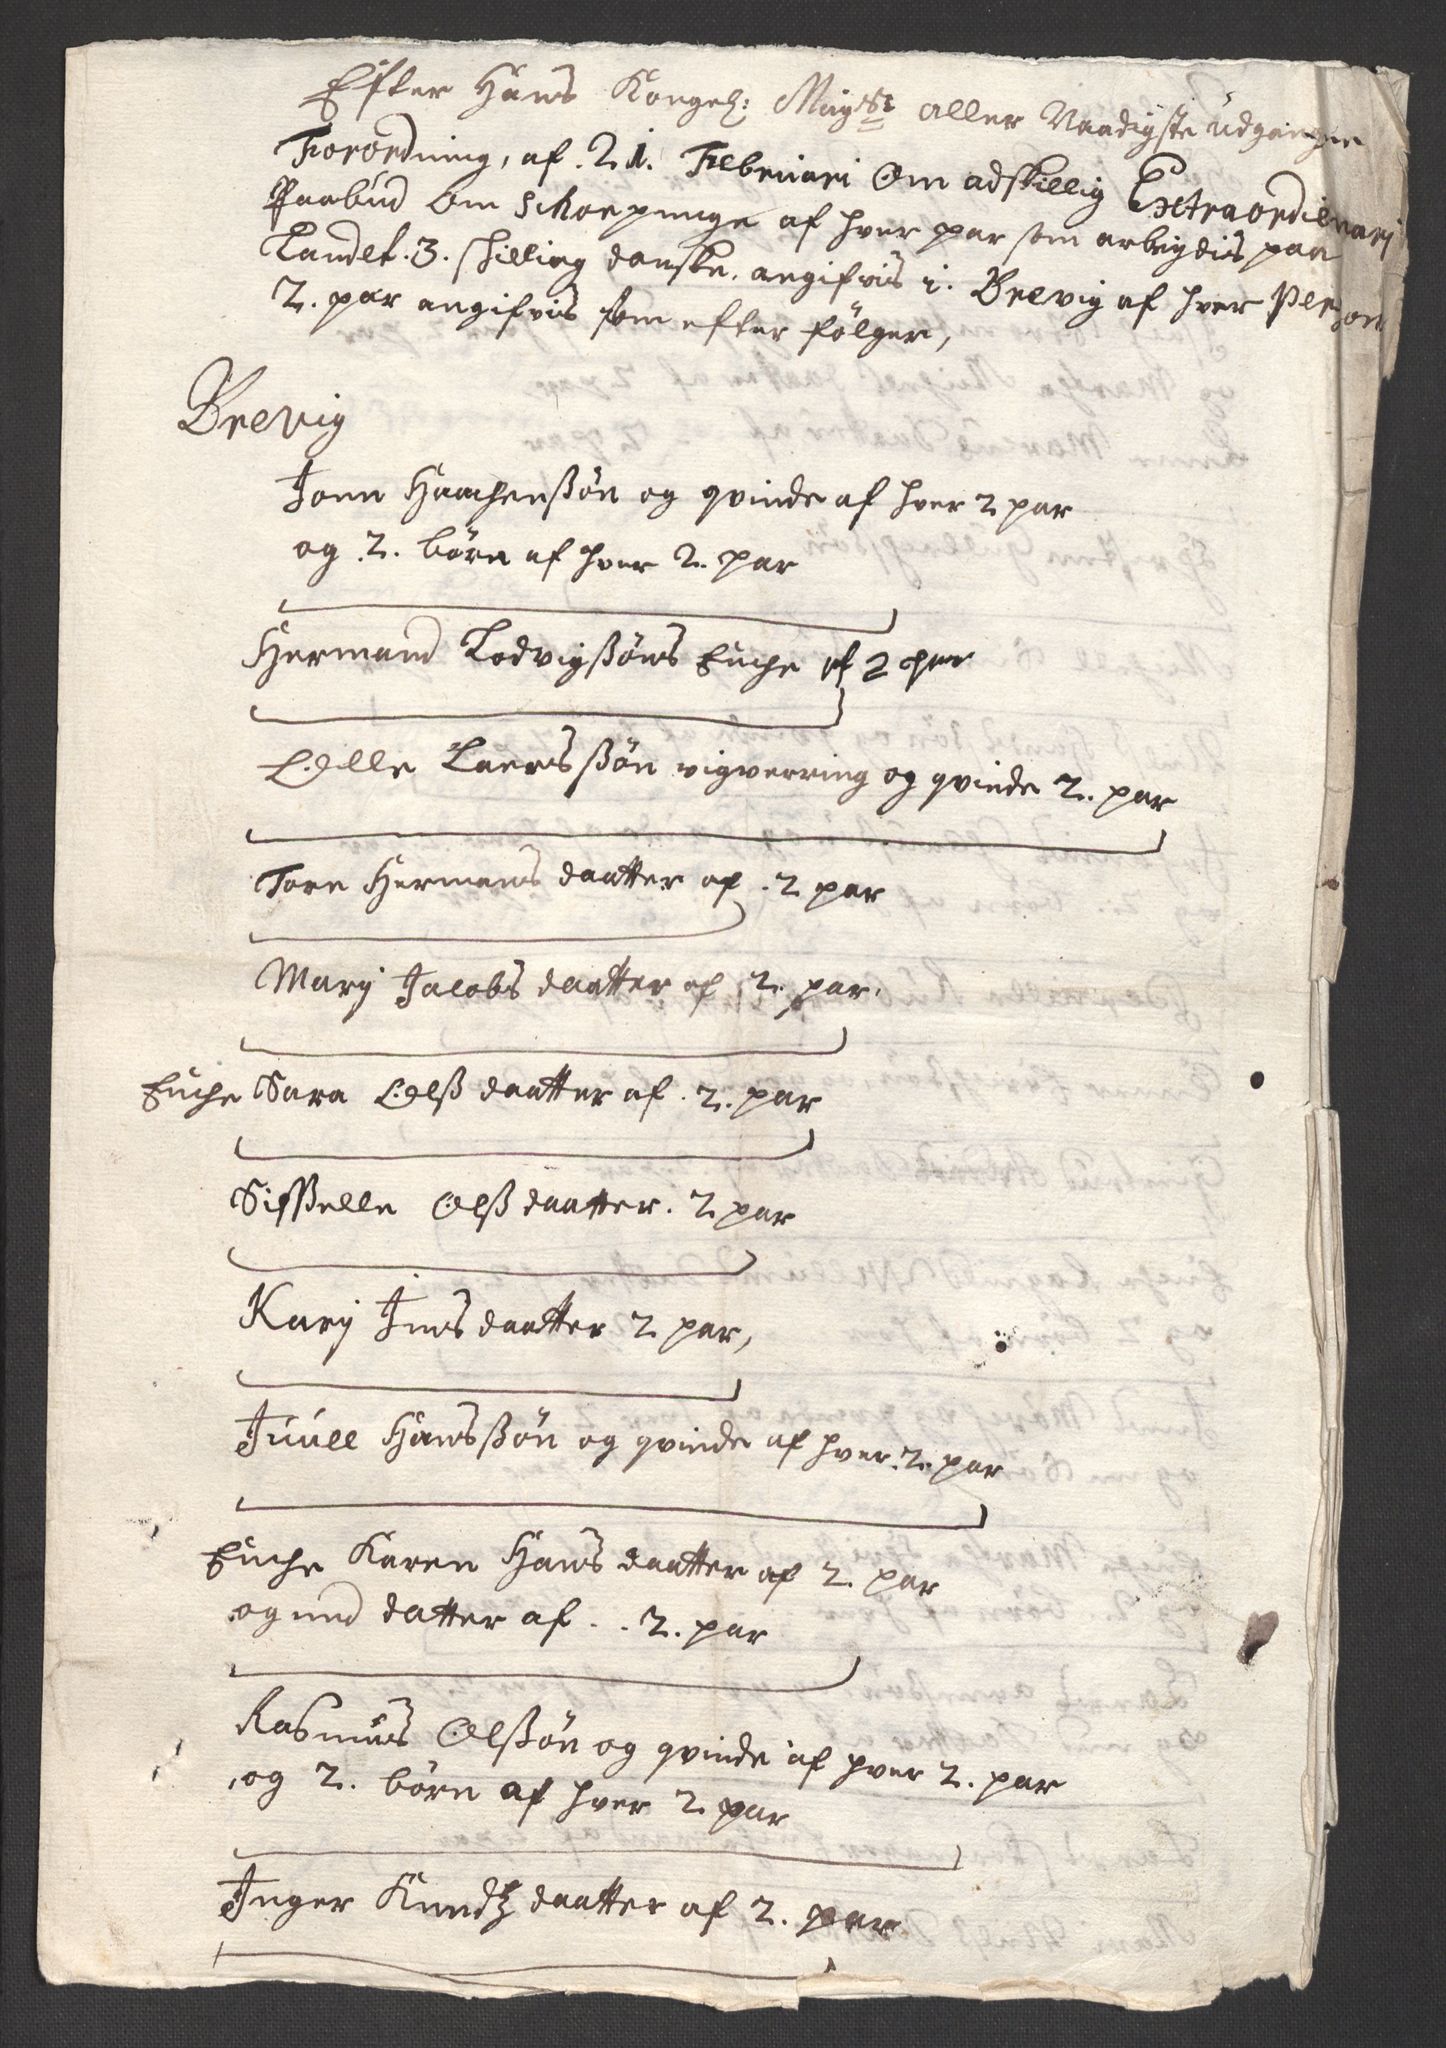 Efter Hans Kongel: Mayst: aller Naadigste udgangne
Forordning, af .21. Februari Om adskillig Extraordienarj
Paabud Om schoepenge af hver par som arbeydis paa
Landet .3. skilling danske, angifvis i. Brevig af hver Perzon
2. par angifvis som efter følger,
Brevig
Jonn Haachensßøn og qvinde af hver 2 par
og 2. børn af hver 2. par
Hermand Lodvigßøns Enche af 2 par
Olle Laersßøn vigverring og qvinde 2. par
Tore Hermans daatter af .2 par
Marj Jacobs daatter af 2. par.
Enche Sara Olß daatter af .2. par
Sifßelle Olß daatter. 2 par
Karj Jens daatter 2 par,
Juull Hansßøn og qvinde af hver .2. par
Enche Karen Hans daatter af 2. par
og und datter af . . 2. par
Rasmus Olßøn og qvinde af hver 2. par
og 2. børn af hver 2 par
Inger Knudtz daatter af 2. par